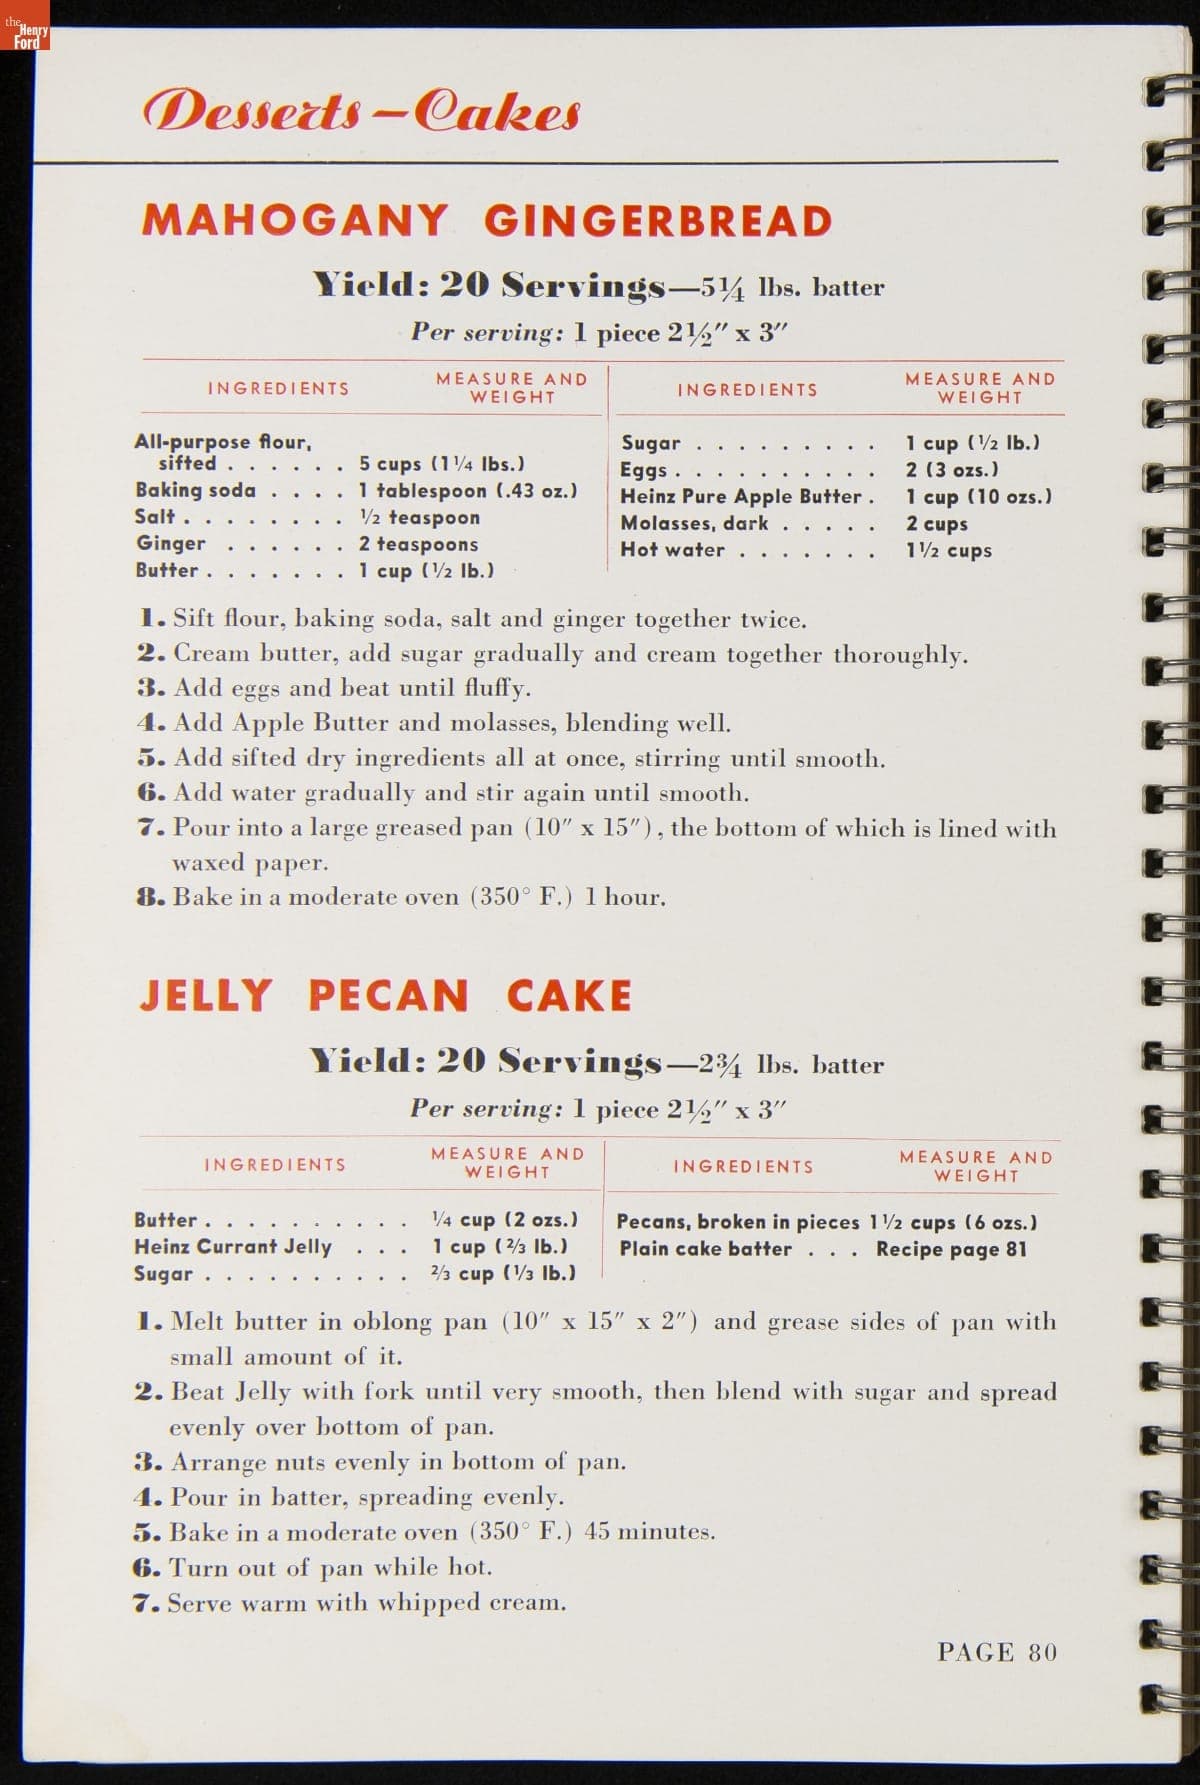 the
Henry
Ford
Desserts—Cakes
MAHOGANY GINGERBREAD
Yield: 20 Servings—5¼ lbs. batter
Per serving: 1 piece 2½″ x 3″
INGREDIENTS MEASURE AND WEIGHT INGREDIENTS MEASURE AND WEIGHT
All-purpose flour,
sifted . . . . . . 5 cups (1¼ lbs.)
Baking soda . . . . 1 tablespoon (.43 oz.)
Salt . . . . . . . . ½ teaspoon
Ginger . . . . . . 2 teaspoons
Butter . . . . . . . 1 cup (½ lb.)
Sugar . . . . . . . . . 1 cup (½ lb.)
Eggs . . . . . . . . . . 2 (3 ozs.)
Heinz Pure Apple Butter . 1 cup (10 ozs.)
Molasses, dark . . . . . 2 cups
Hot water . . . . . . . 1½ cups
1. Sift flour, baking soda, salt and ginger together twice.
2. Cream butter, add sugar gradually and cream together thoroughly.
3. Add eggs and beat until fluffy.
4. Add Apple Butter and molasses, blending well.
5. Add sifted dry ingredients all at once, stirring until smooth.
6. Add water gradually and stir again until smooth.
7. Pour into a large greased pan (10″ x 15″), the bottom of which is lined with
waxed paper.
8. Bake in a moderate oven (350° F.) 1 hour.
JELLY PECAN CAKE
Yield: 20 Servings—2¾ lbs. batter
Per serving: 1 piece 2½″ x 3″
INGREDIENTS MEASURE AND WEIGHT INGREDIENTS MEASURE AND WEIGHT
Butter . . . . . . . . . . ¼ cup (2 ozs.)
Heinz Currant Jelly . . . 1 cup (⅔ lb.)
Sugar . . . . . . . . . . ⅔ cup (⅓ lb.)
Pecans, broken in pieces 1½ cups (6 ozs.)
Plain cake batter . . . Recipe page 81
1. Melt butter in oblong pan (10″ x 15″ x 2″) and grease sides of pan with
small amount of it.
2. Beat Jelly with fork until very smooth, then blend with sugar and spread
evenly over bottom of pan.
3. Arrange nuts evenly in bottom of pan.
4. Pour in batter, spreading evenly.
5. Bake in a moderate oven (350° F.) 45 minutes.
6. Turn out of pan while hot.
7. Serve warm with whipped cream.
PAGE 80